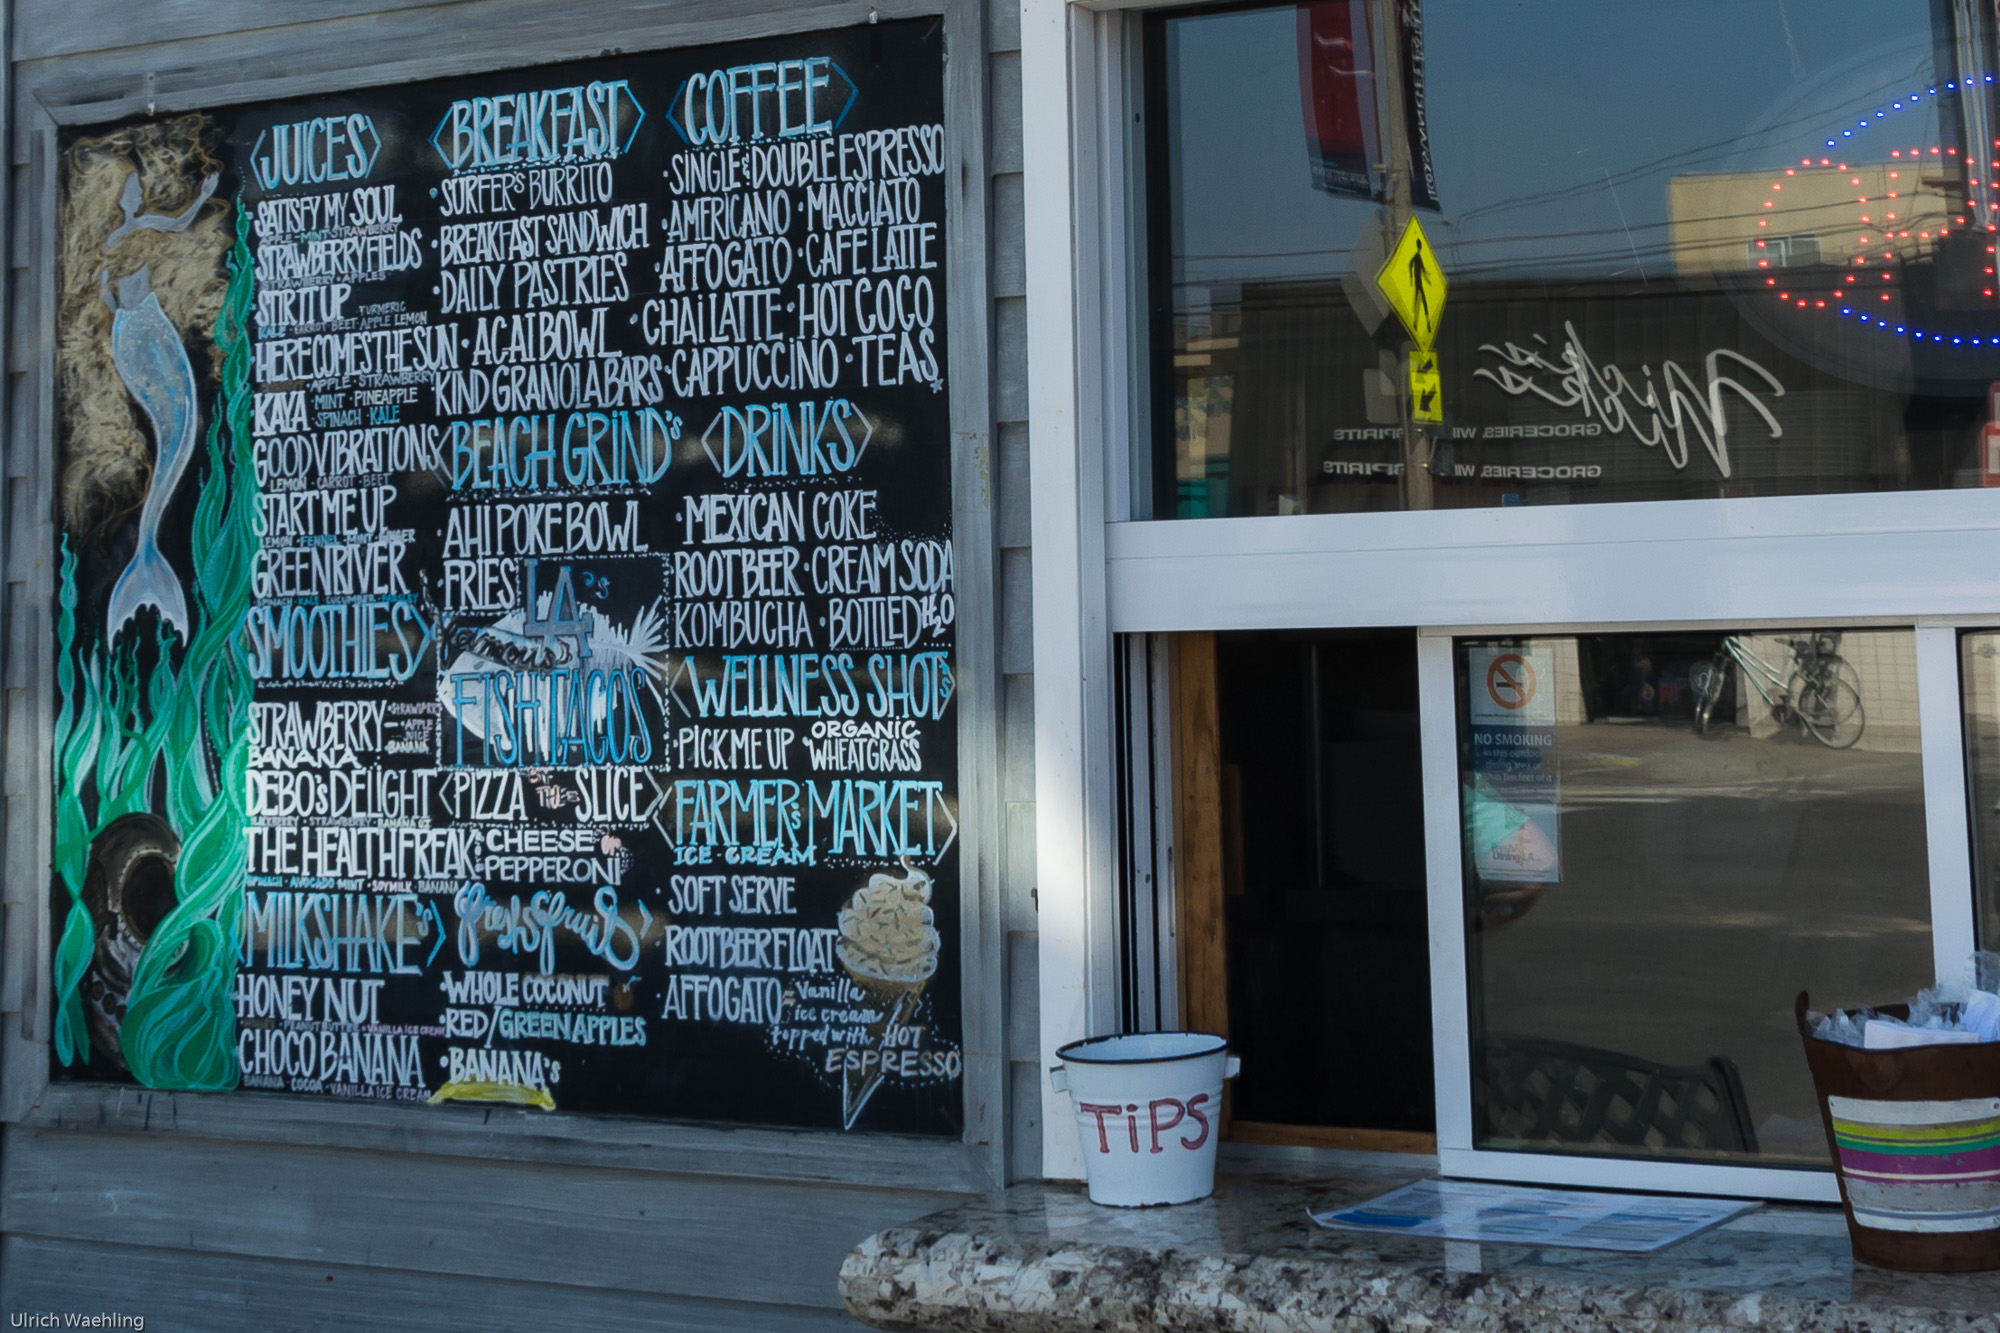 <JUICES>
SATISFY MY SOUL
APPLE - MINT STRAWBERRY
STRAWBERRY FIELDS
STRAWBERRY · APPLES
STIR IT UP
TURMERIC
KALE · CARROT BEET · APPLE LEMON
HERE COMES THE SUN
· APPLE · STRAWBERRY
KAYA
· MINT · PINEAPPLE
· SPINACH · KALE
GOOD VIBRATIONS
LEMON · CARROT · BEET
START ME UP
LEMON · FENNEL · MINT · GINGER
GREEN RIVER
SPINACH · KALE · CUCUMBER · PARSLEY
SMOOTHIES>
STRAWBERRY-
BANANA
· STRAWBERRY
· APPLE
JUICE
· BANANA
DEBO'S DELIGHT
· STRAWBERRY · BANANA OJ
THE HEALTH FREAK
SPINACH · AVOCADO MINT · SOYMILK · BANANA
MILKSHAKE'S>
HONEY NUT
PEANUT BUTTER · VANILLA ICE CREAM
CHOCO BANANA
BANANA · COCOA · VANILLA ICE CREAM
<BREAKFAST>
· SURFER'S BURRITO
· BREAKFAST SANDWICH
· DAILY PASTRIES
· ACAI BOWL
KIND GRANOLA BARS
<BEACH GRIND'S
· AHI POKE BOWL
· FRIES
LA'S
famous
FISH TACOS
<PIZZA BY THE SLICE>
CHEESE
· PEPPERONI
fresh fruit>
· WHOLE COCONUT
· RED/GREEN APPLES
· BANANA'S
<COFFEE>
· SINGLE & DOUBLE ESPRESSO
· AMERICANO · MACCIATO
· AFFOGATO · CAFE LATTE
· CHAI LATTE · HOT COCO
· CAPPUCCINO · TEAS
<DRINKS>
· MEXICAN COKE
ROOTBEER · CREAM SODA
KOMBUCHA · BOTTLED H2O
<WELLNESS SHOT'S>
· PICK ME UP · ORGANIC WHEATGRASS
<FARMER'S MARKET>
ICE CREAM
· SOFT SERVE
ROOTBEER FLOAT
· AFFOGATO = Vanilla
ice cream
topped with HOT
ESPRESSO
Nick's
GROCERIES, WINE SPIRITS
GROCERIES, WINE SPIRITS
NO SMOKING
in this outdoor
dining area or
within ten feet of a
Fresh
Dining LA
TiPS
Ulrich Waehling